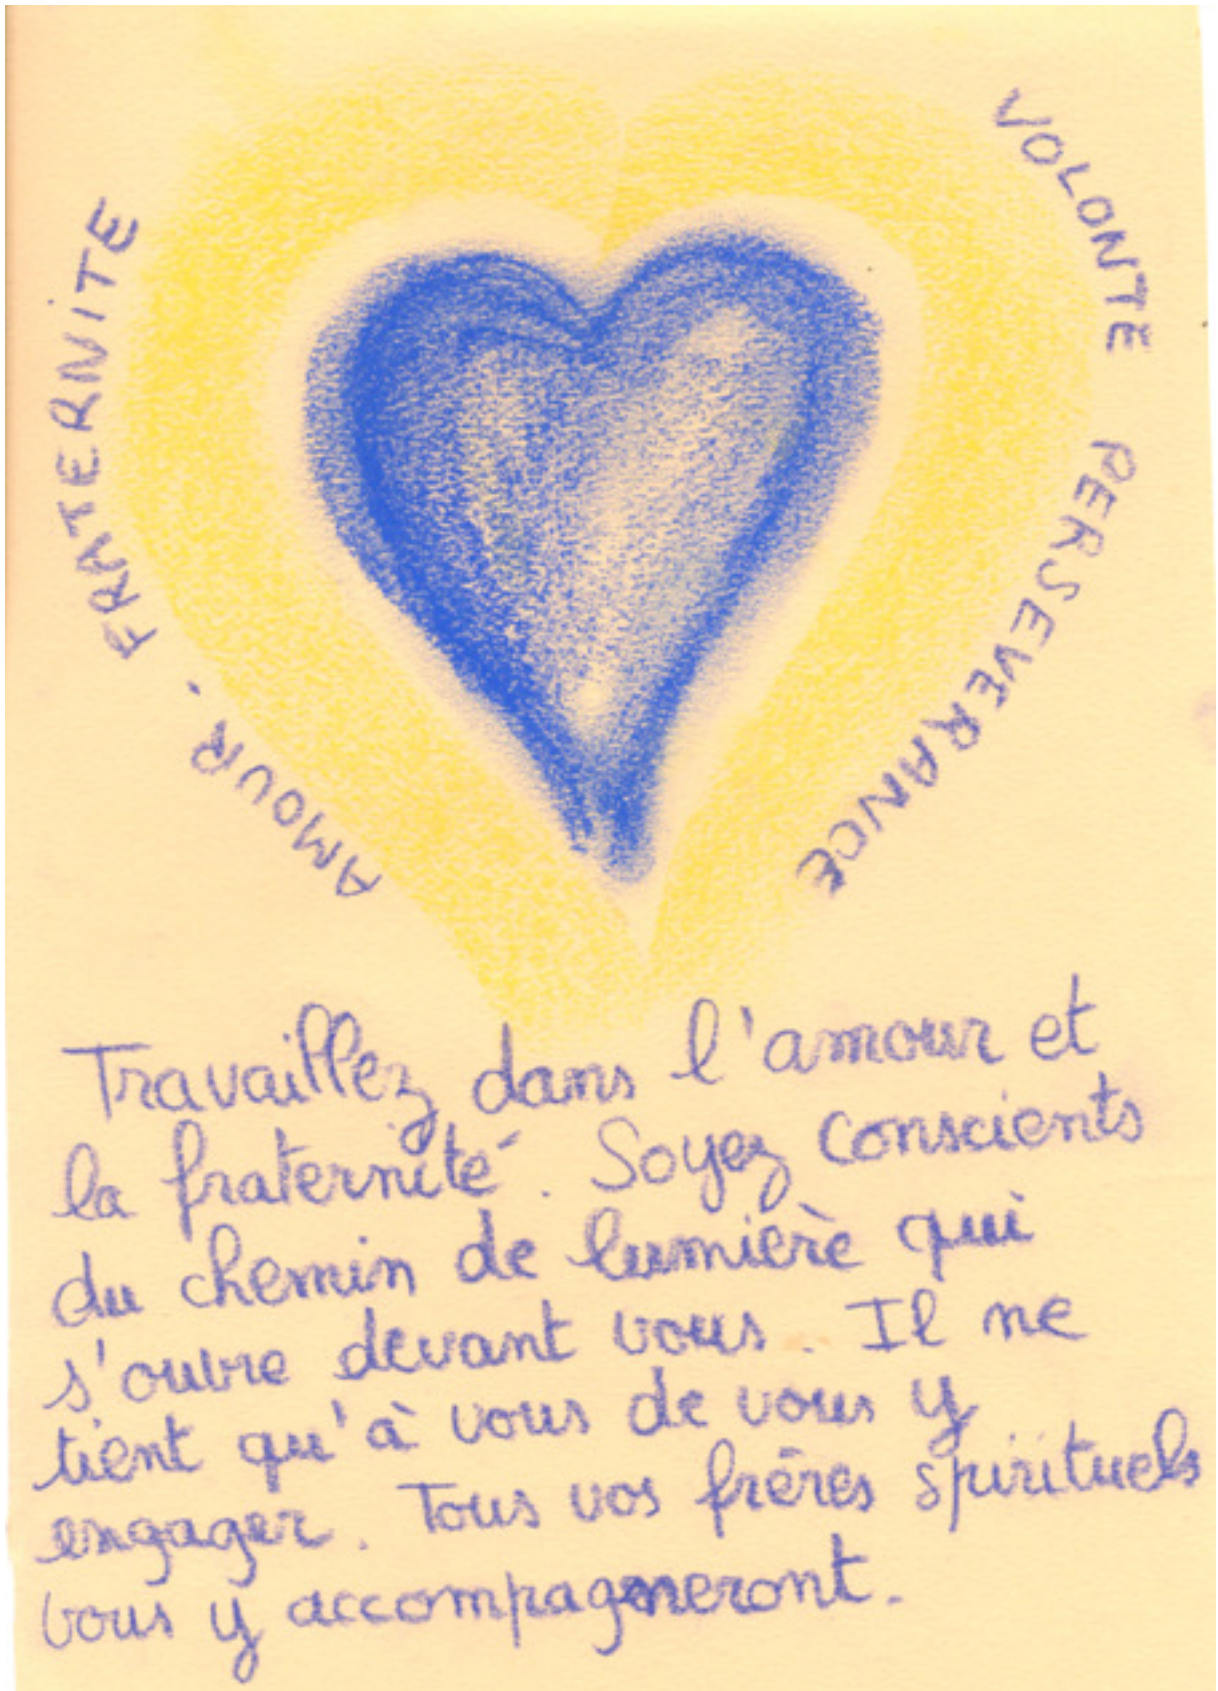 AMOUR. FRATERNITE
VOLONTE PERSEVERANCE
Travaillez dans l'amour et
la fraternité. Soyez conscients
du chemin de lumière qui
s'ouvre devant vous. Il ne
tient qu'à vous de vous y
engager. Tous vos frères spirituels
vous y accompagneront.